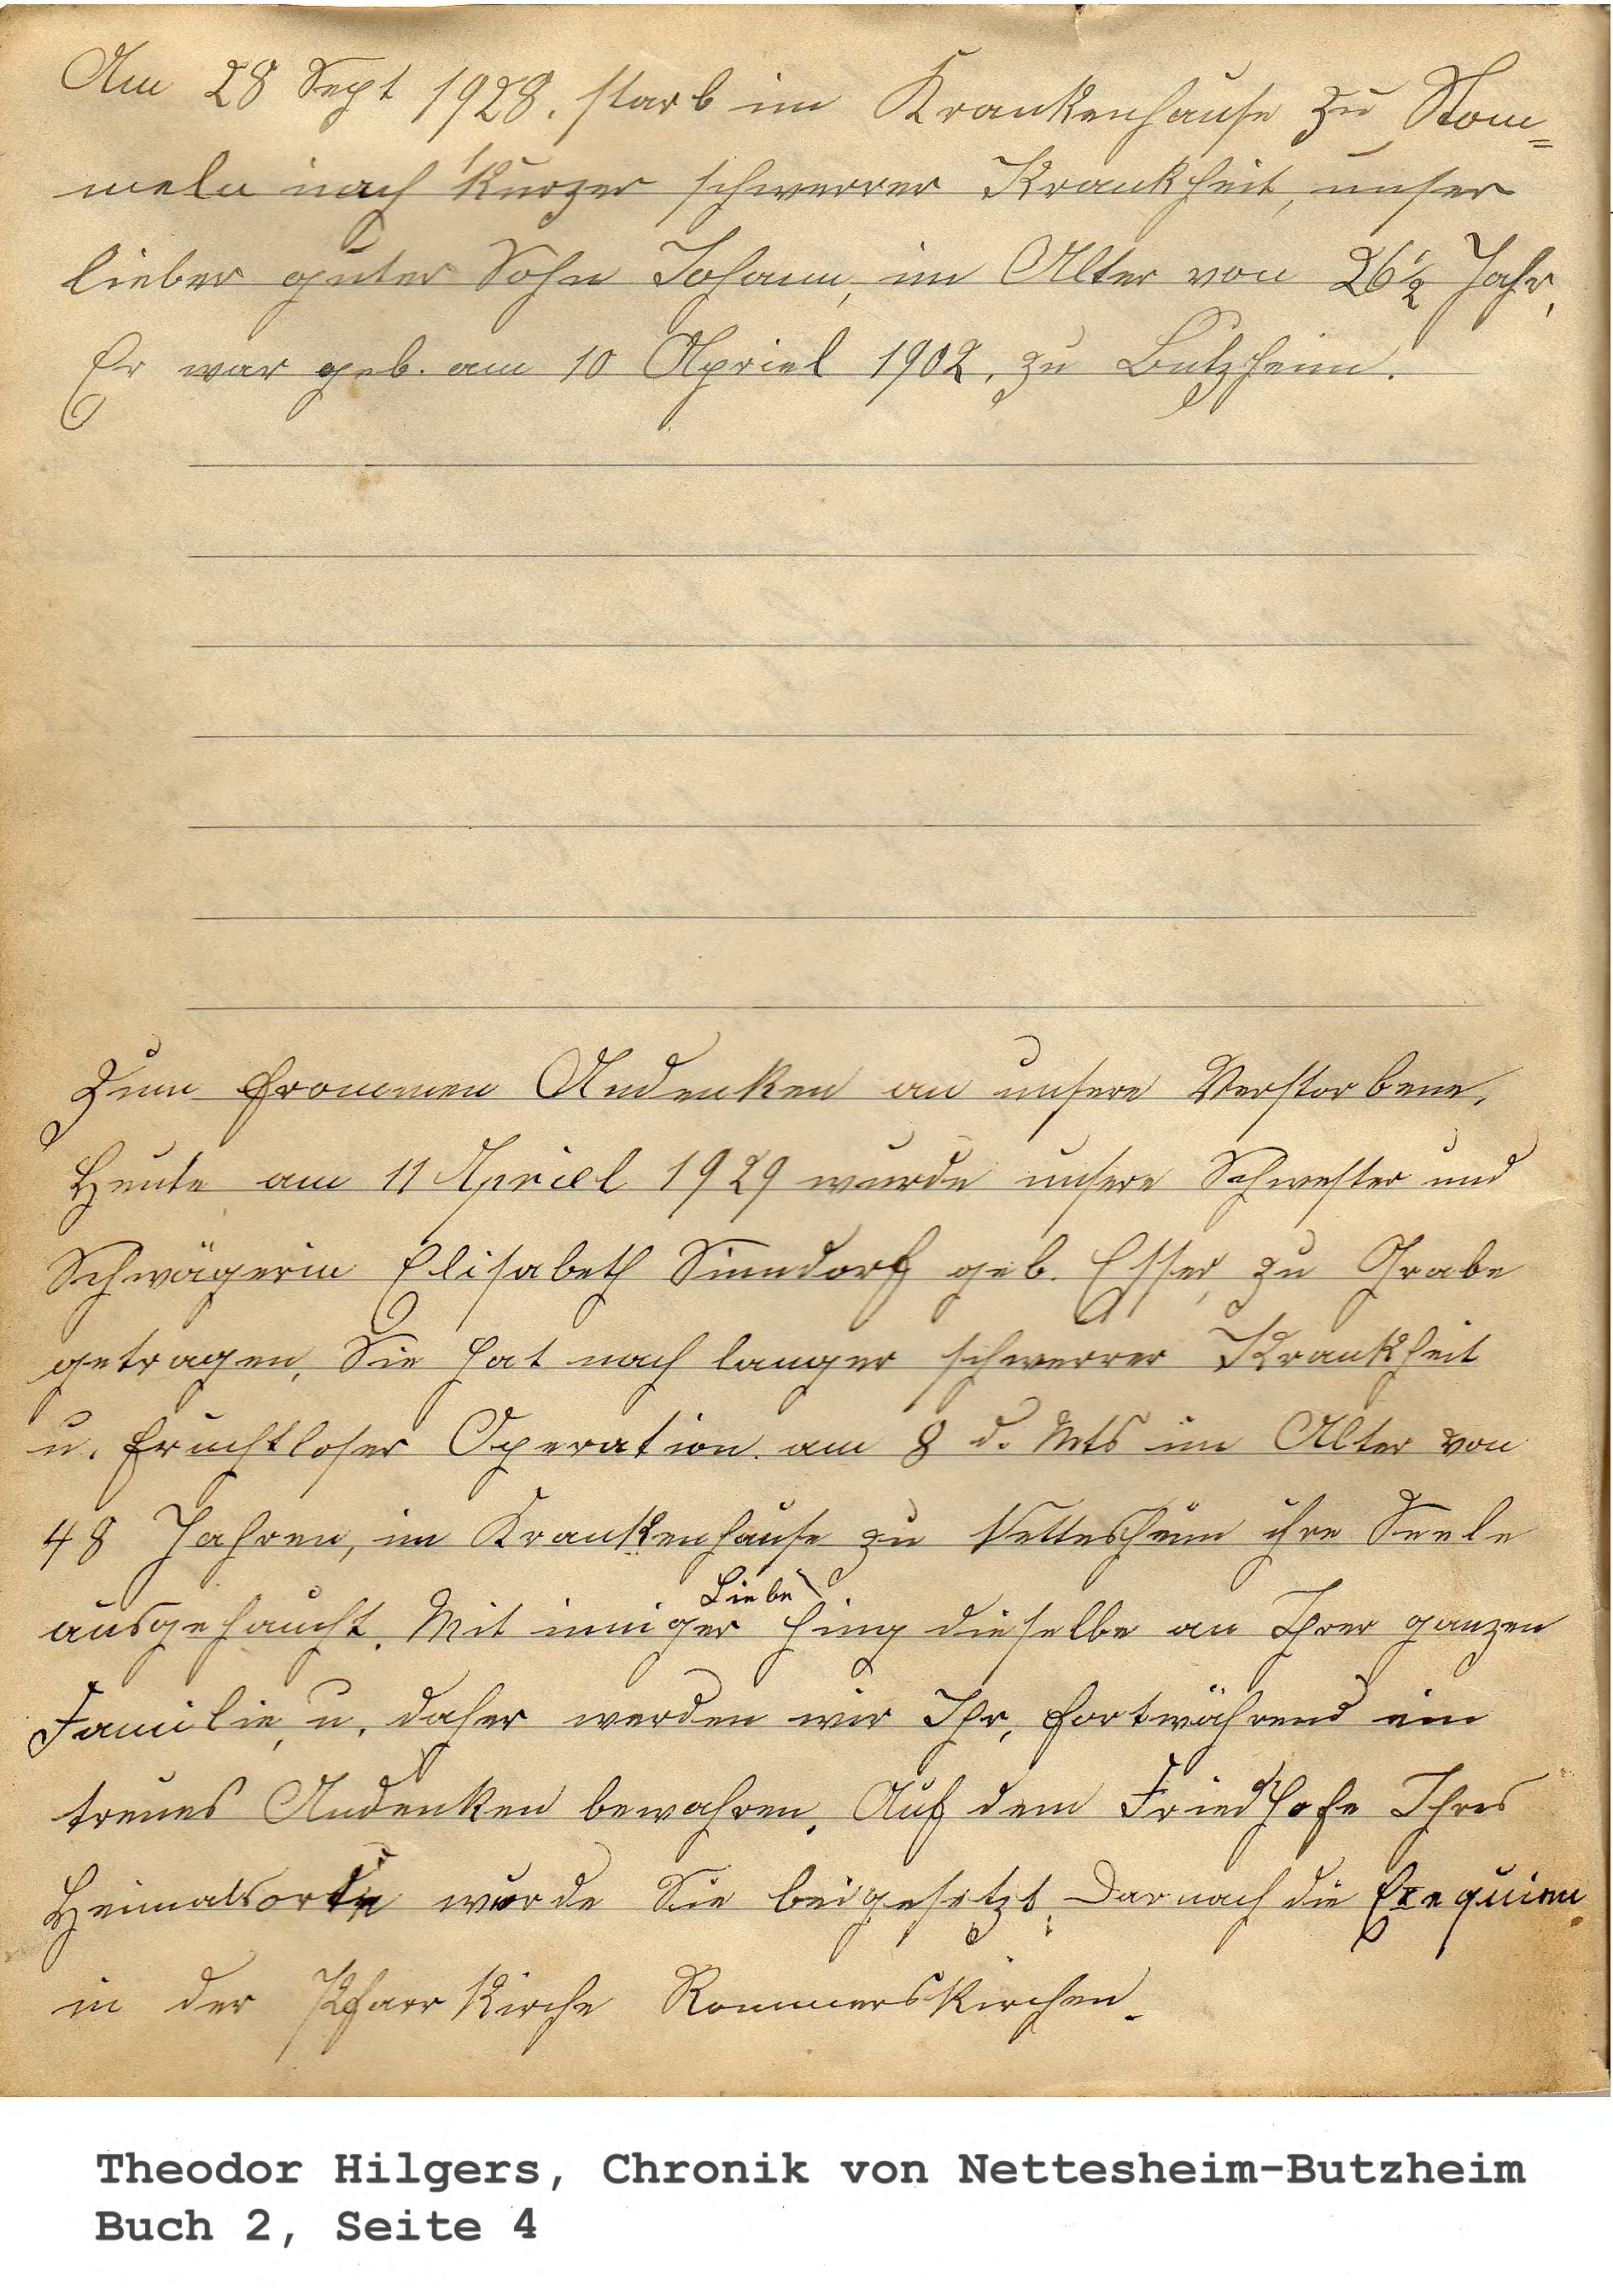 Am 28 Sept 1928. starb im Krankenhause zu Stom=
meln nach kurzer schwerrer Krankheit, unser
lieber guter Sohn Johann, im Alter von 26½ Jahr,
Er war geb. am 10 Apriel 1902, zu Butzheim.
Zum frommen Andenken an unsere Verstorbene,
Heute am 11 Apriel 1929 wurde unsere Schwester und
Schwägerin Elisabeth Sinndorf geb. Esser, zu Grabe
getragen, Sie hat nach langer schwerrer Krankheit
u. fruchtloser Operation am 8 d. Mts im Alter von
48 Jahren, im Krankenhause zu Nettesheim ihre Seele
ausgehaucht. Mit inniger Liebe hing dieselbe an Ihrer ganzen
Familie, u. daher werden wir Ihr, fortwährend ein
treues Andenken bewahren. Auf dem Friedhofe Ihres
Heimatsorte wurde Sie beigesetzt. Darnach die Exequien
in der Pfarrkirche Rommerskirchen.
Theodor Hilgers, Chronik von Nettesheim-Butzheim
Buch 2, Seite 4